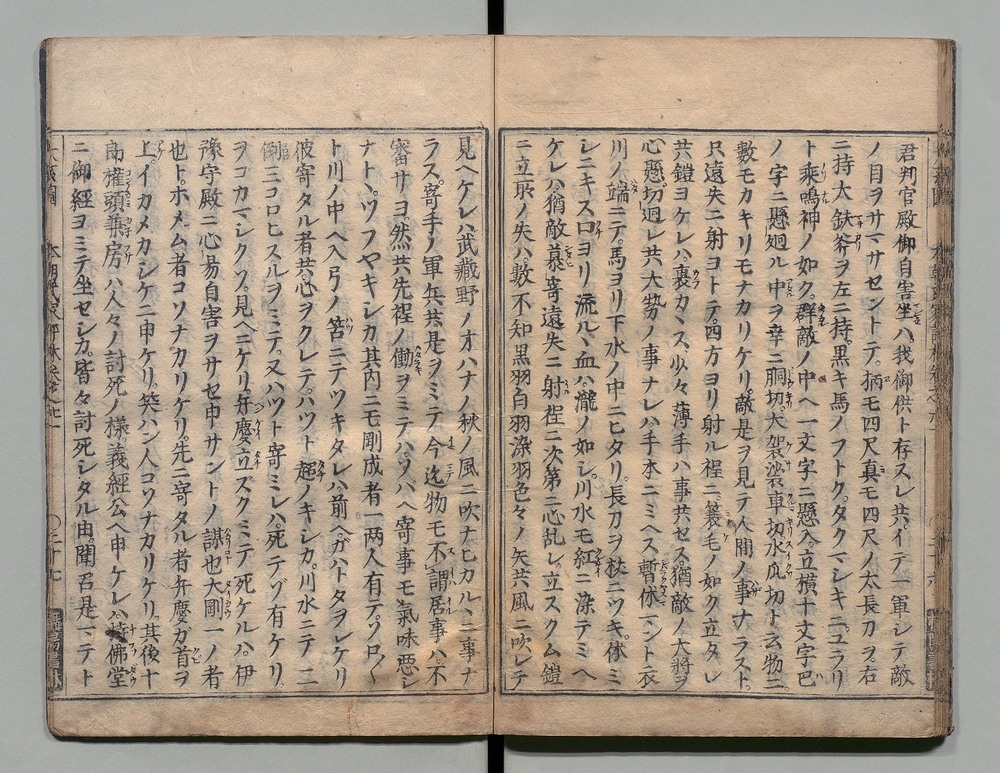 君判官殿御自害坐ハ我御供ト存スレ共イテ一軍シテ敵
ノ目ヲサマサセントテ柄モ四尺真モ四尺ノ太長刀ヲ右
ニ持大鈇斧ヲ左ニ持黒キ馬ノフトクタクマシキニユラリ
ト乗鳴神ノ如ク群敵ノ中ヘ一文字ニ懸入立横十文字巴
ノ字ニ懸廻ル中ヲ幸ニ胴切大袈裟車切水瓜切ト云物ニ
數モカキリモナカリケリ敵是ヲ見テ人間ノ事ナラスト
只遠矢ニ射コトテ四方ヨリ射ル程ニ簑毛ノ如ク立タレ
共鎧ヨケレハ裏カヽス少々薄手ハ事共セス猶敵ノ大將ヲ
心懸切廻レ共大勢ノ事ナレハ手本ニミヘス暫休マント衣
川ノ端ニテ馬ヨリ下水ノ中ニヒタリ長刀ヲ杖ニツキ休ミ
シニキスロヨリ流ルヽ血ハ瀧ノ如シ川水モ紅ニ染テミヘ
ケレハ猶敵慕寄遠矢ニ射程ニ次第ニ心乱レ立スクム鎧
ニ立所ノ矢ハ數不知黒羽白羽染羽色々ノ矢共風ニ吹レテ
見ヘケレハ武藏野ノオハナノ秋ノ風ニ吹ナヒカルヽニ事ナ
ラス寄手ノ軍兵共是ヲミテ今迄物モ不謂居事ハ不
審サヨ然共先程ノ働ヲミテハソハヘ寄事モ氣味惡シ
ナトヽツフヤキシカ其内ニモ剛成者一兩人有テソロ〱
ト川ノ中ヘ入弓ノ筈ニテツキタレハ前ヘカハトタヲレケリ
彼寄タル者共心ヲクレテハツト超ノキシカ川水ニテ二
倒三コロヒスルヲミテ又ハツト寄ミレハ死テゾ有ケリ
ヲコカマシクソ見ヘニケリ弁慶立ズクミテ死ケルハ伊
豫守殿ニ心易自害ヲサセ申サントノ謀也大剛一ノ者
也トホメム者コソナカリケリ先ニ寄タル者弁慶ガ首ヲ
上イカメカシケニ申ケリ笑ハン人コソナカリケリ其後十
郎權頭兼房ハ人々ノ討死ノ樣義經公ヘ申ケレハ持佛堂
ニ御經ヨミテ坐セシカ皆々討死シタル由聞召是マテト